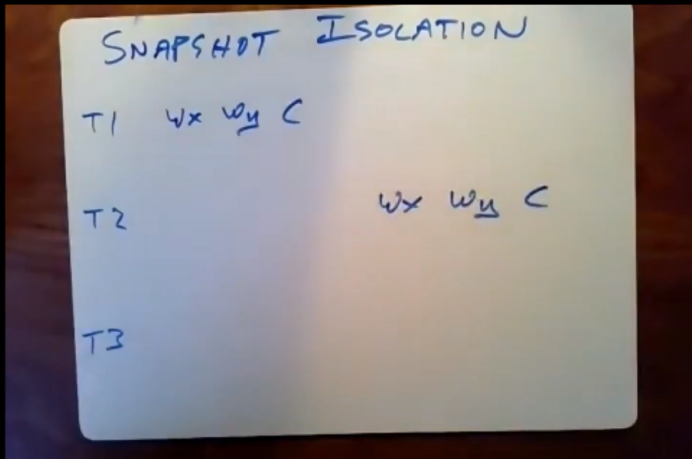 SNAPSHOT ISOLATION
T1 Wx Wy C
T2 Wx Wy C
T3